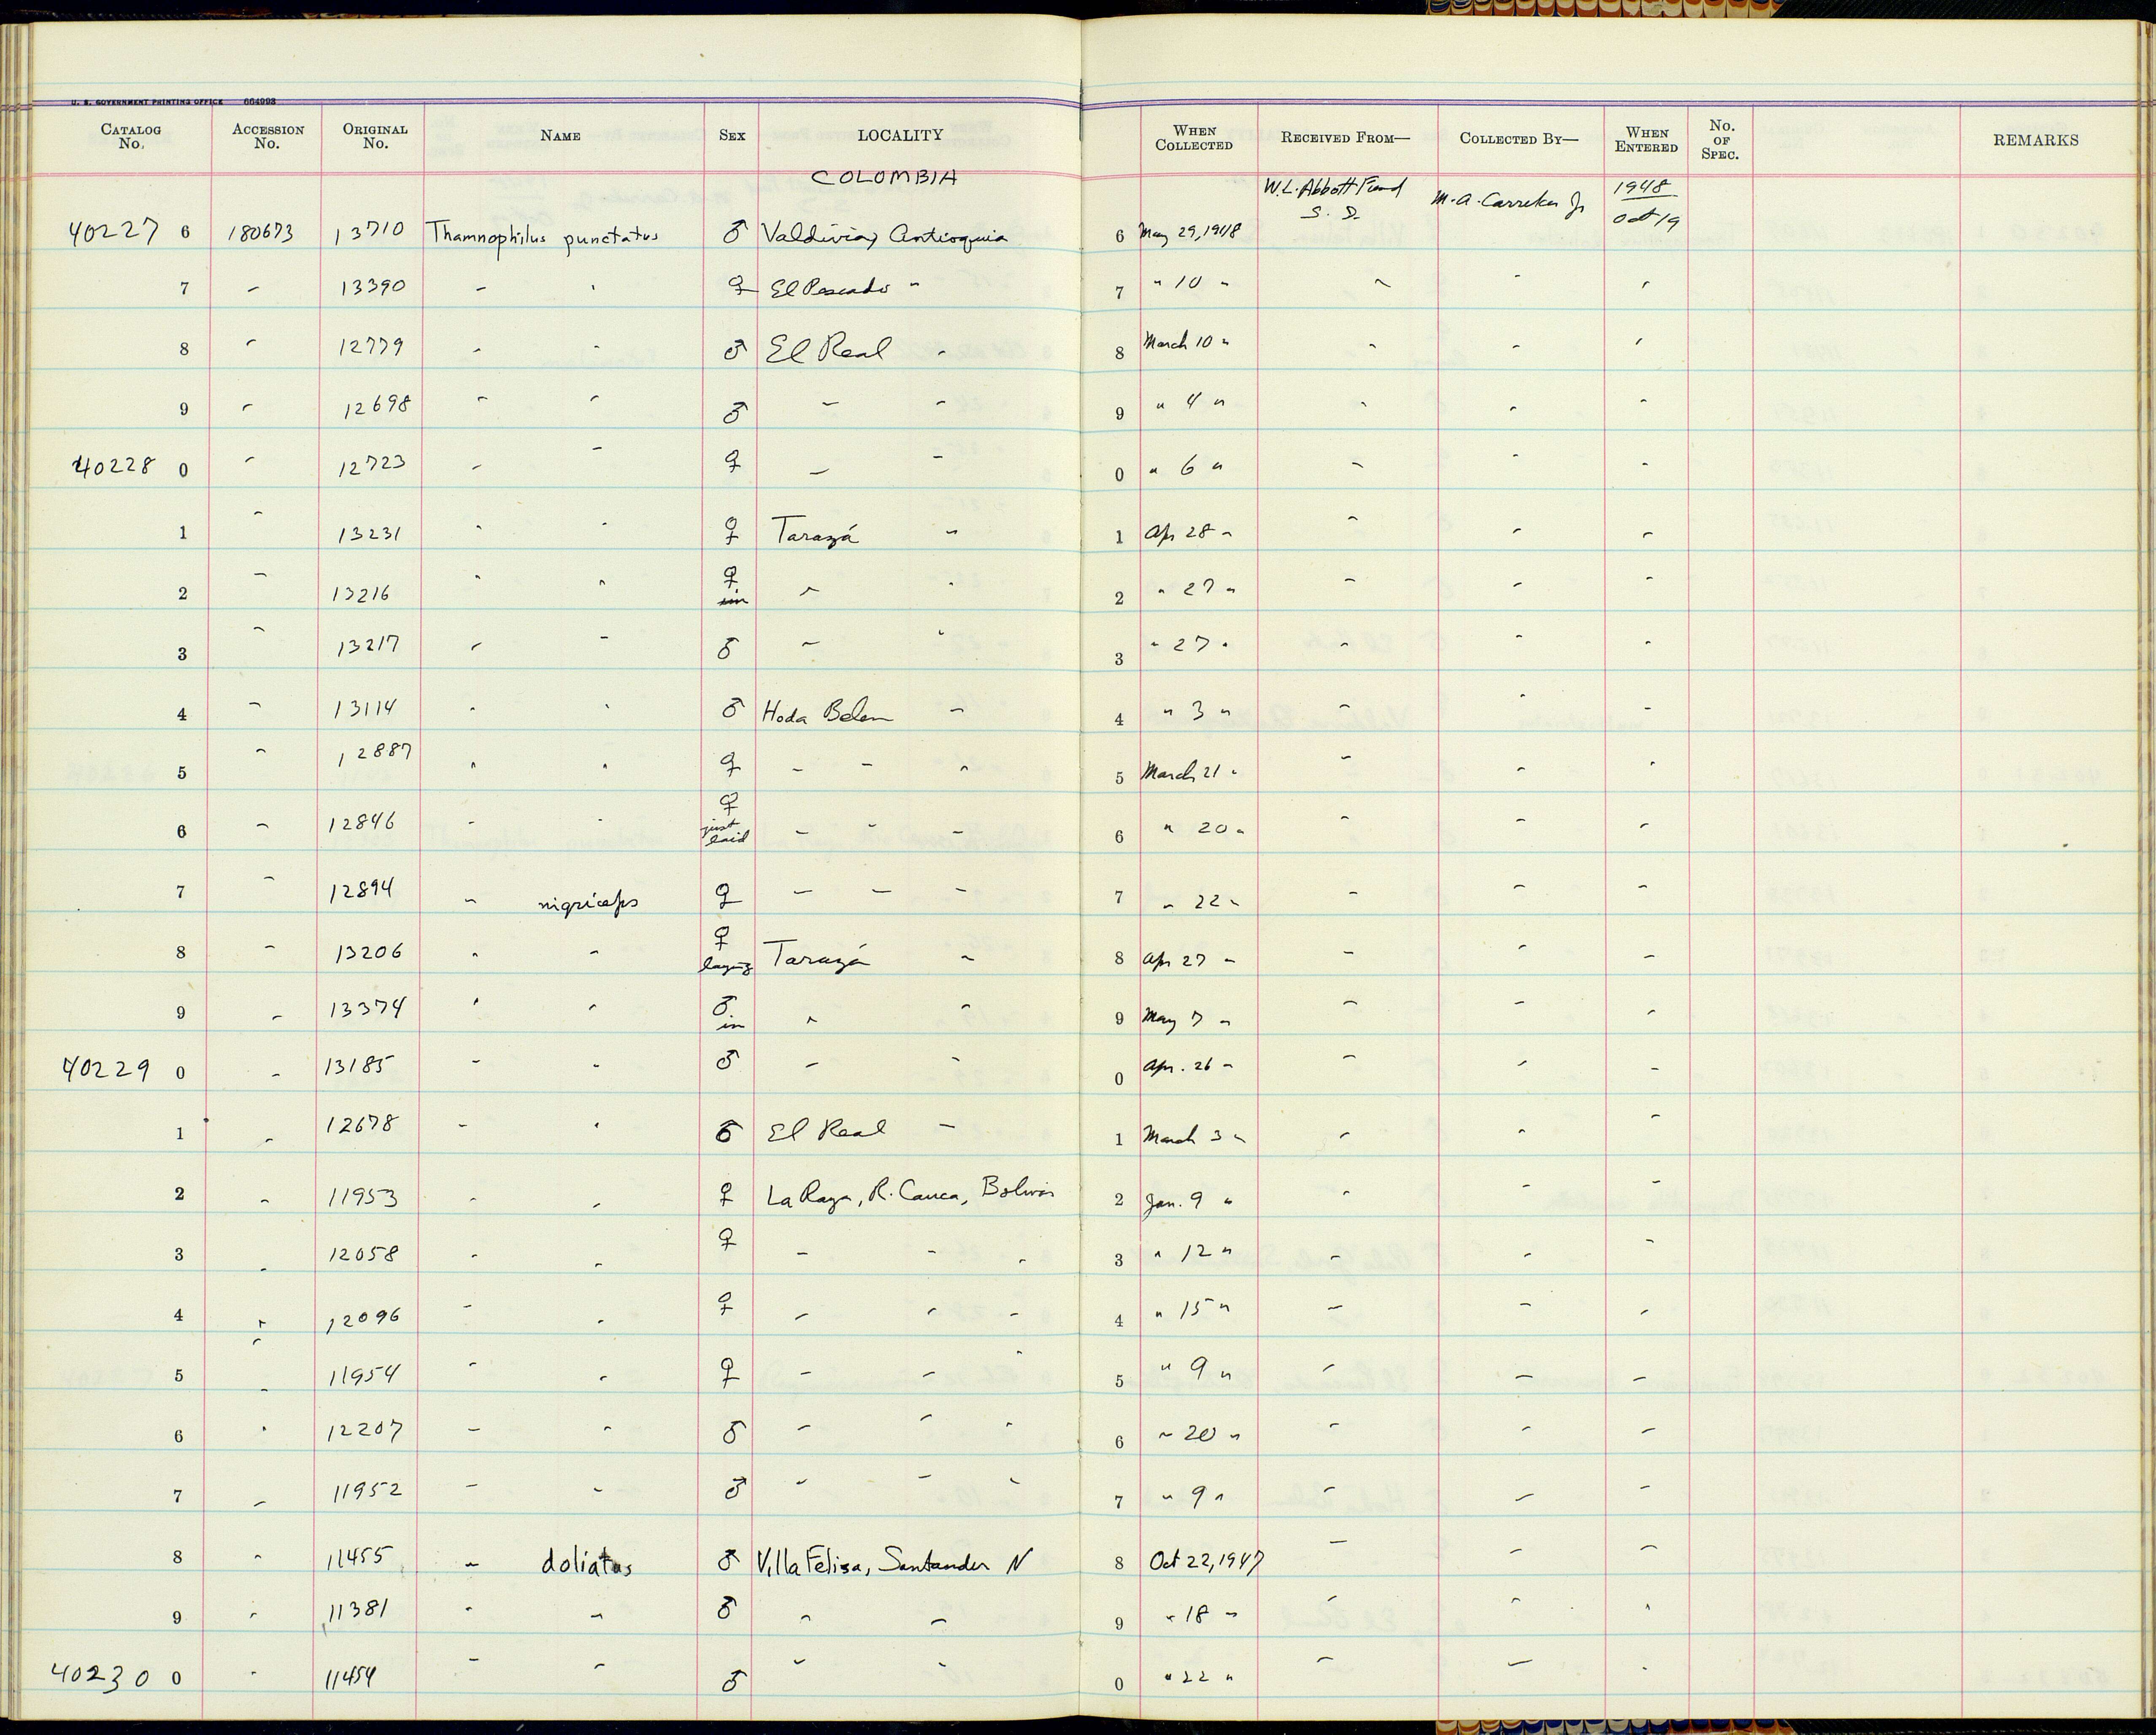 U. S. GOVERNMENT PRINTING OFFICE 664993
CATALOG No. ACCESSION No. ORIGINAL No. NAME SEX LOCALITY WHEN COLLECTED RECEIVED FROM— COLLECTED BY— WHEN ENTERED No. OF SPEC. REMARKS
COLOMBIA W.L. Abbott Fund S. D. M. A. Carriker Jr 1948
40227 6 180673 13710 Thamnophilus punctatus ♂ Valdivia, Antioquia 6 May 29, 1948 Oct 19
7 " 13390 " " ♀ El Pescado " 7 " 10 " " " "
8 " 12779 " " ♂ El Real " 8 March 10 " " " "
9 " 12698 " " ♂ " " 9 " 4 " " " "
40228 0 " 12723 " " ♀ " " 0 " 6 " " " "
1 " 13231 " " ♀ Tarazá " 1 Apr 28 " " " "
2 " 13216 " " ♀ " " 2 " 27 " " " "
3 " 13217 " " ♂ " " 3 " 27 " " " "
4 " 13114 " " ♂ Hoda Belen " 4 " 3 " " " "
5 " 12887 " " ♀ " " " 5 March 21 " " " "
6 " 12846 " " ♀ just laid " " " 6 " 20 " " " "
7 " 12894 " nigriceps ♀ " " " 7 " 22 " " " "
8 " 13206 " " ♀ laying Tarazá " 8 Apr 27 " " " "
9 " 13374 " " ♂ im " " 9 May 7 " " " "
40229 0 " 13185 " " ♂ " " 0 Apr. 26 " " " "
1 " 12678 " " ♂ El Real " 1 March 3 " " " "
2 " 11953 " " ♀ La Raya, R. Cauca, Bolivar 2 Jan. 9 " " " "
3 " 12058 " " ♀ " " " 3 " 12 " " " "
4 " 12096 " " ♀ " " " 4 " 15 " " " "
5 " 11954 " " ♀ " " " 5 " 9 " " " "
6 " 12207 " " ♂ " " " 6 " 20 " " " "
7 " 11952 " " ♂ " " " 7 " 9 " " " "
8 " 11455 " doliatus ♂ Villa Felisa, Santander N 8 Oct 22, 1947 " " "
9 " 11381 " " ♂ " " 9 " 18 " " " "
40230 0 " 11454 " " ♂ " " 0 " 22 " " " "